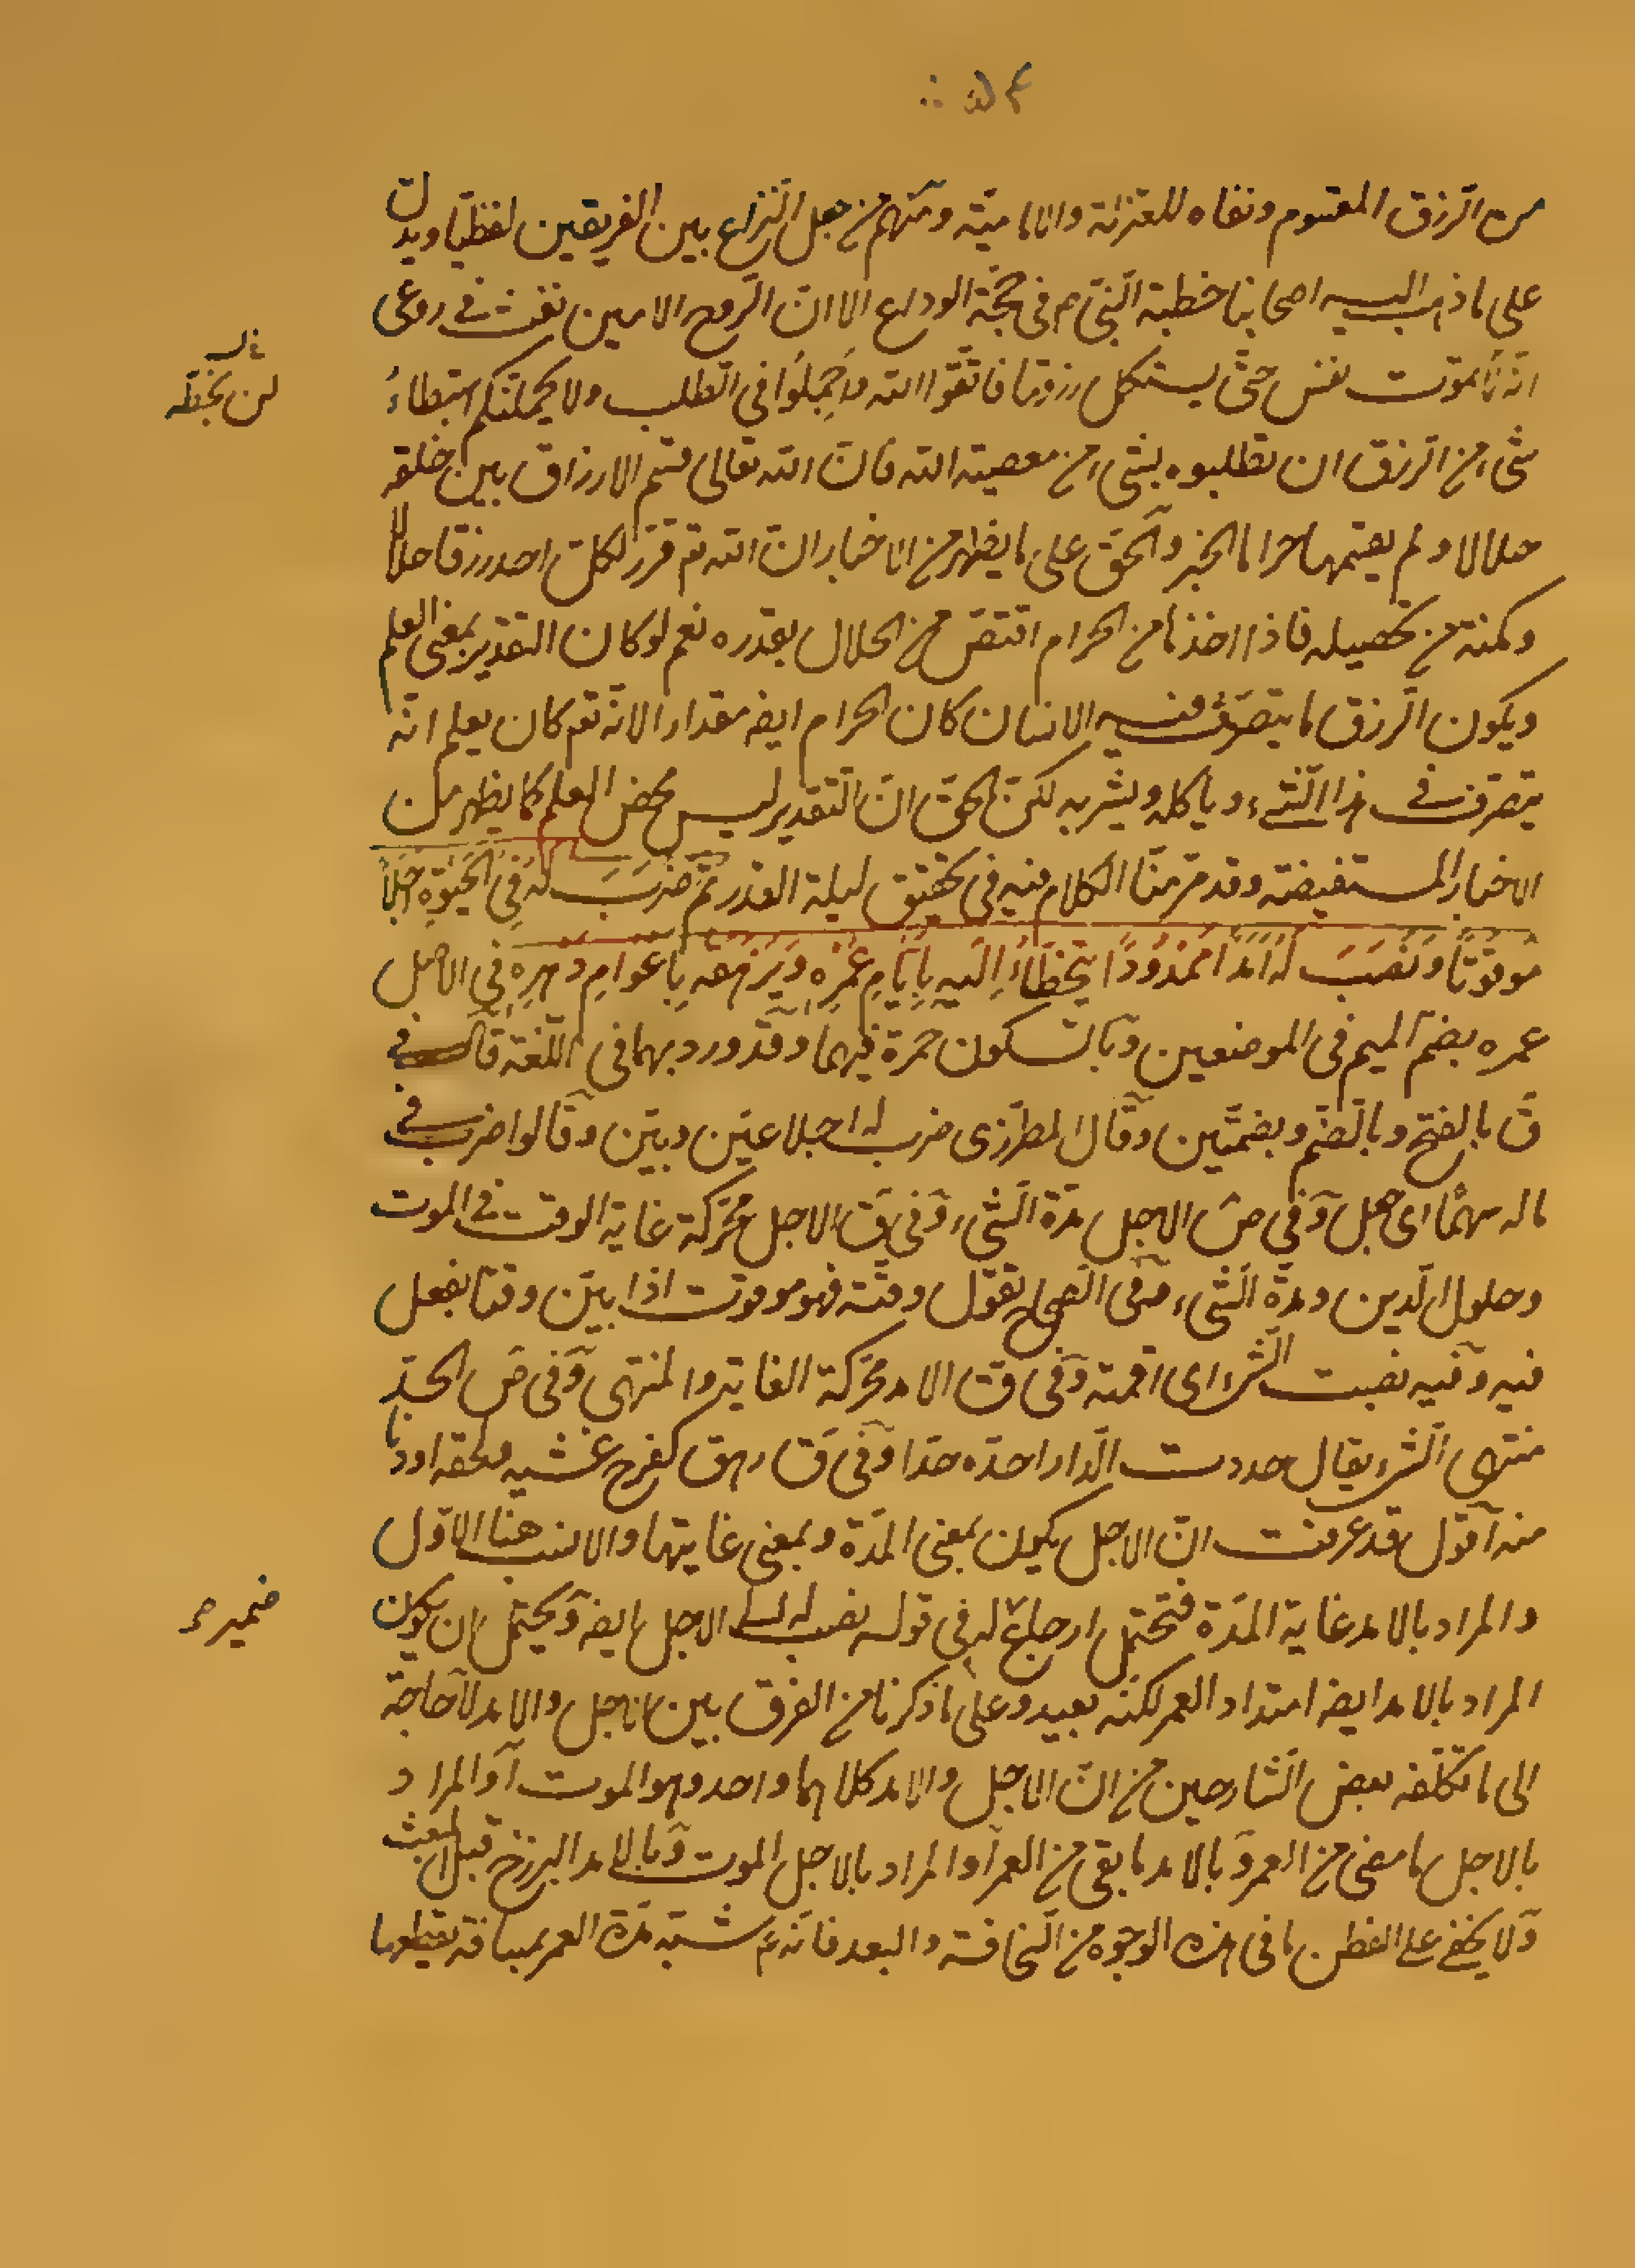 من الرزق المقسوم ونفاه للمعتزلة والامامية ومنهم من جعل النزاع بين الفريقين لفظيا ويدل
على ما ذهب اليه اصحابنا خطبة النبي ص في حجة الوداع الا ان الروح الامين نفث في روعى
انه لا تموت نفس حتى يستكمل رزقها فاتقوا الله واجملوا في الطلب ولا يحملنكم استبطاء
شىء من الرزق ان تطلبوه بشىء من معصية الله فان الله تعالى قسم الارزاق بين خلقه
حلالا ولم يقسمها حراما الخبر والحق على ما يظهر من الاخبار ان الله تع قرر لكل احد رزقا حلالا
ومكنه من تحصيله فاذا اخذنا من الحرام انتقص من الحلال بقدره نعم لو كان التقدير بمعنى العلم
ويكون الرزق ما يتصرف فيه الانسان كان الحرام ايضه مقدارا لانه تع كان يعلم انه
يتصرف في هذا الشىء وياكله ويشربه لكن الحق ان التقدير ليس محض العلم كما يظهر من
الاخبار المستفيضة وقد مر منا الكلام فيه في تحقيق ليلة القدر ثُمَّ ضَرَبَ لَهُ فِي الْحَيٰوةِ اَجَلاً
مَوْقُوتًا وَنَصَبَ لَهُ اَمَدًا مَحْدُودًا يَتَخَطَّاُ اِلَيْهِ بِاَيَّامِ عُمُرِهِ وَيَرْهَقُهُ بِاَعْوَامِ دَهْرِهِ في الاصل
عمره بضم الميم في الموضعين وبالسكون حمرة فيهما وقد ورد بهما في اللغة قال في
ق بالفتح وبالضم وبضمتين وقال المطرزى ضرب له اجلا عين وبين وقالوا ضرب في
ماله سهما اى جعل وفي ص الاجل مدة الشىء وفي ق الاجل محركة غاية الوقت في الموت
وحلول الدين ومدة الشىء وفي الصحاح تقول وقته فهو موقوت اذا بين وقتا يفعل
فيه وفيه نصبت الشىء اى اقمته وفي ق الامد محركة الغاية والمنتهى وفي ص الحد
منتهى الشىء يقال حددت الدار احده حدا وفي ق رهق كفرح غشيه ولحقه او دنا
منه اقول قد عرفت ان الاجل يكون بمعنى المدة وبمعنى غايتها والانسب هنا الاول
والمراد بالامد غاية المدة فتحتمل ارجاع له في قوله نصب له الى الاجل ايضه ويحتمل ان يكون
ضمير صح
المراد بالامد ايضه امتداد العمر لكنه بعيد وعلى ما ذكرنا من الفرق بين الاجل والامد لا حاجة
الى ما تكلفه بعض الشارحين من ان الاجل والامد كلاهما واحد وهو الموت او المراد
بالاجل ما مضى من العمر وبالامد ما بقى من العمر او المراد بالاجل الموت وبالامد البرزخ قبل البعث
ولا يخفى على الفطن ما في هذه الوجوه من السخافة والبعد فانه ع شبه مدة العمر بمسافة يقطعها